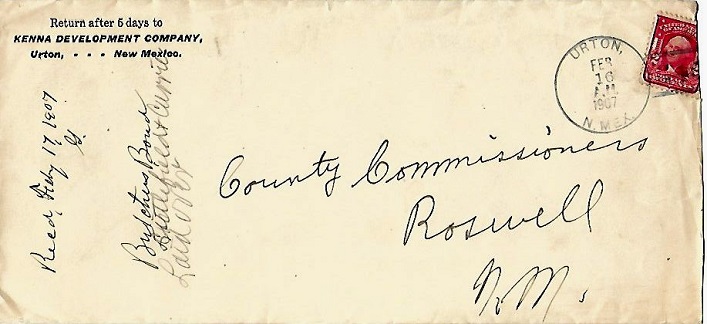 Return after 5 days to
KENNA DEVELOPMENT COMPANY,
Urton, - - - New Mexico.
URTON,
FEB
16
A.M.
1907
N. MEX.
Recd, Feby 17, 1907
Butchers Bond
Laid over
County Commissioners
Roswell
N. M.